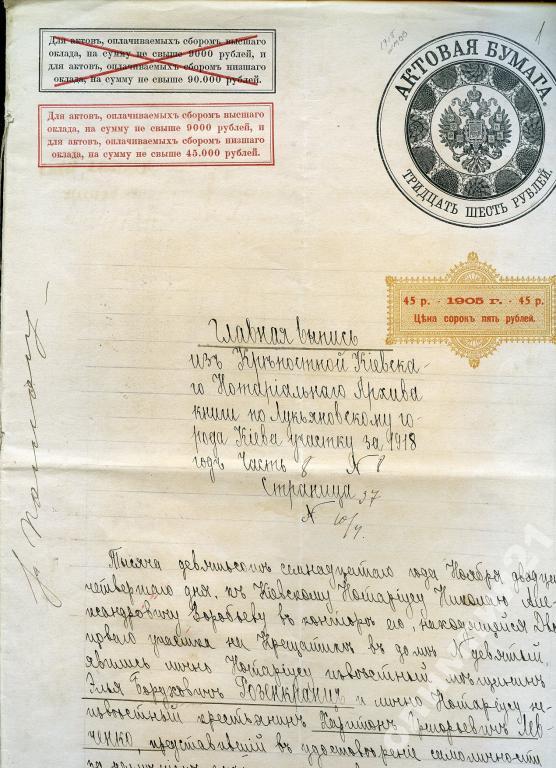 Для актовъ, оплачиваемыхъ сборомъ высшаго
оклада, на сумму не свыше 9000 рублей, и
для актовъ, оплачиваемыхъ сборомъ низшаго
оклада, на сумму не свыше 90.000 рублей.
Для актовъ, оплачиваемыхъ сборомъ высшаго
оклада, на сумму не свыше 9000 рублей, и
для актовъ, оплачиваемыхъ сборомъ низшаго
оклада, на сумму не свыше 45.000 рублей.
1
АКТОВАЯ БУМАГА.
ТРИДЦАТЬ ШЕСТЬ РУБЛЕЙ.
45 р. - 1905 г. - 45 р.
Цѣна сорокъ пять рублей.
Главная выпись
изъ Крѣпостной Кіевска-
го Нотаріальнаго Архива
книги по Лукьяновскому го-
рода Кіева участку за 1918
годъ Часть 8 № 8
Страница 37
№ 10/4.
Тысяча девятьсотъ семнадцатаго года Ноября двадца
четвертаго дня, къ Кіевскому Нотаріусу Николаю Але-
ксандровичу Воробьеву въ контору его, находящейся Дво
цоваго участка на Крещатикѣ въ домѣ № девятый,
явились лично Нотаріусу извѣстный мѣщанинъ
Элья Боруховичъ Розенкранцъ и лично Нотаріусу не-
извѣстный крестьянинъ Харитонъ Григорьевичъ Лев-
ченко, представившій въ удостовѣреніе самоличности